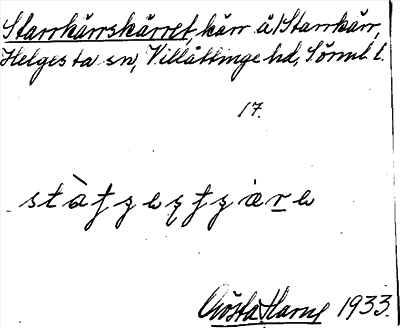 Starrkärrskärret, kärr å Starrkärr,
Helgesta sn, Villåttinge hd, Sörml. l.
17.
Gösta Harne 1933.